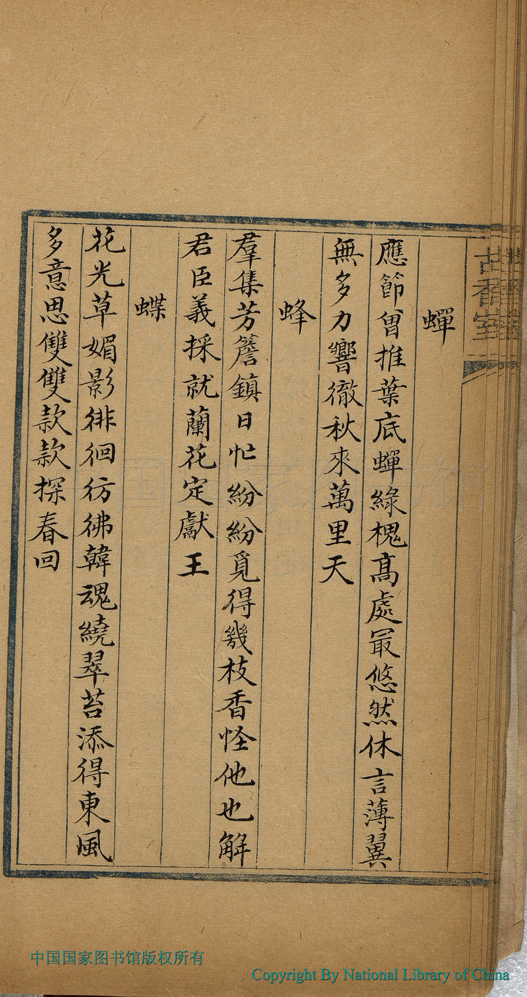 古香室
蟬
應節曾推葉底蟬綠槐高處最悠然休言薄翼
無多力響徹秋來萬里天
蜂
羣集芳簷鎮日忙紛紛覓得幾枝香怪他也解
君臣義採就蘭花定獻王
蝶
花光草媚影徘徊彷彿韓魂繞翠苔添得東風
多意思雙雙款款探春回
中国国家图书馆版权所有
Copyright By National Library of China